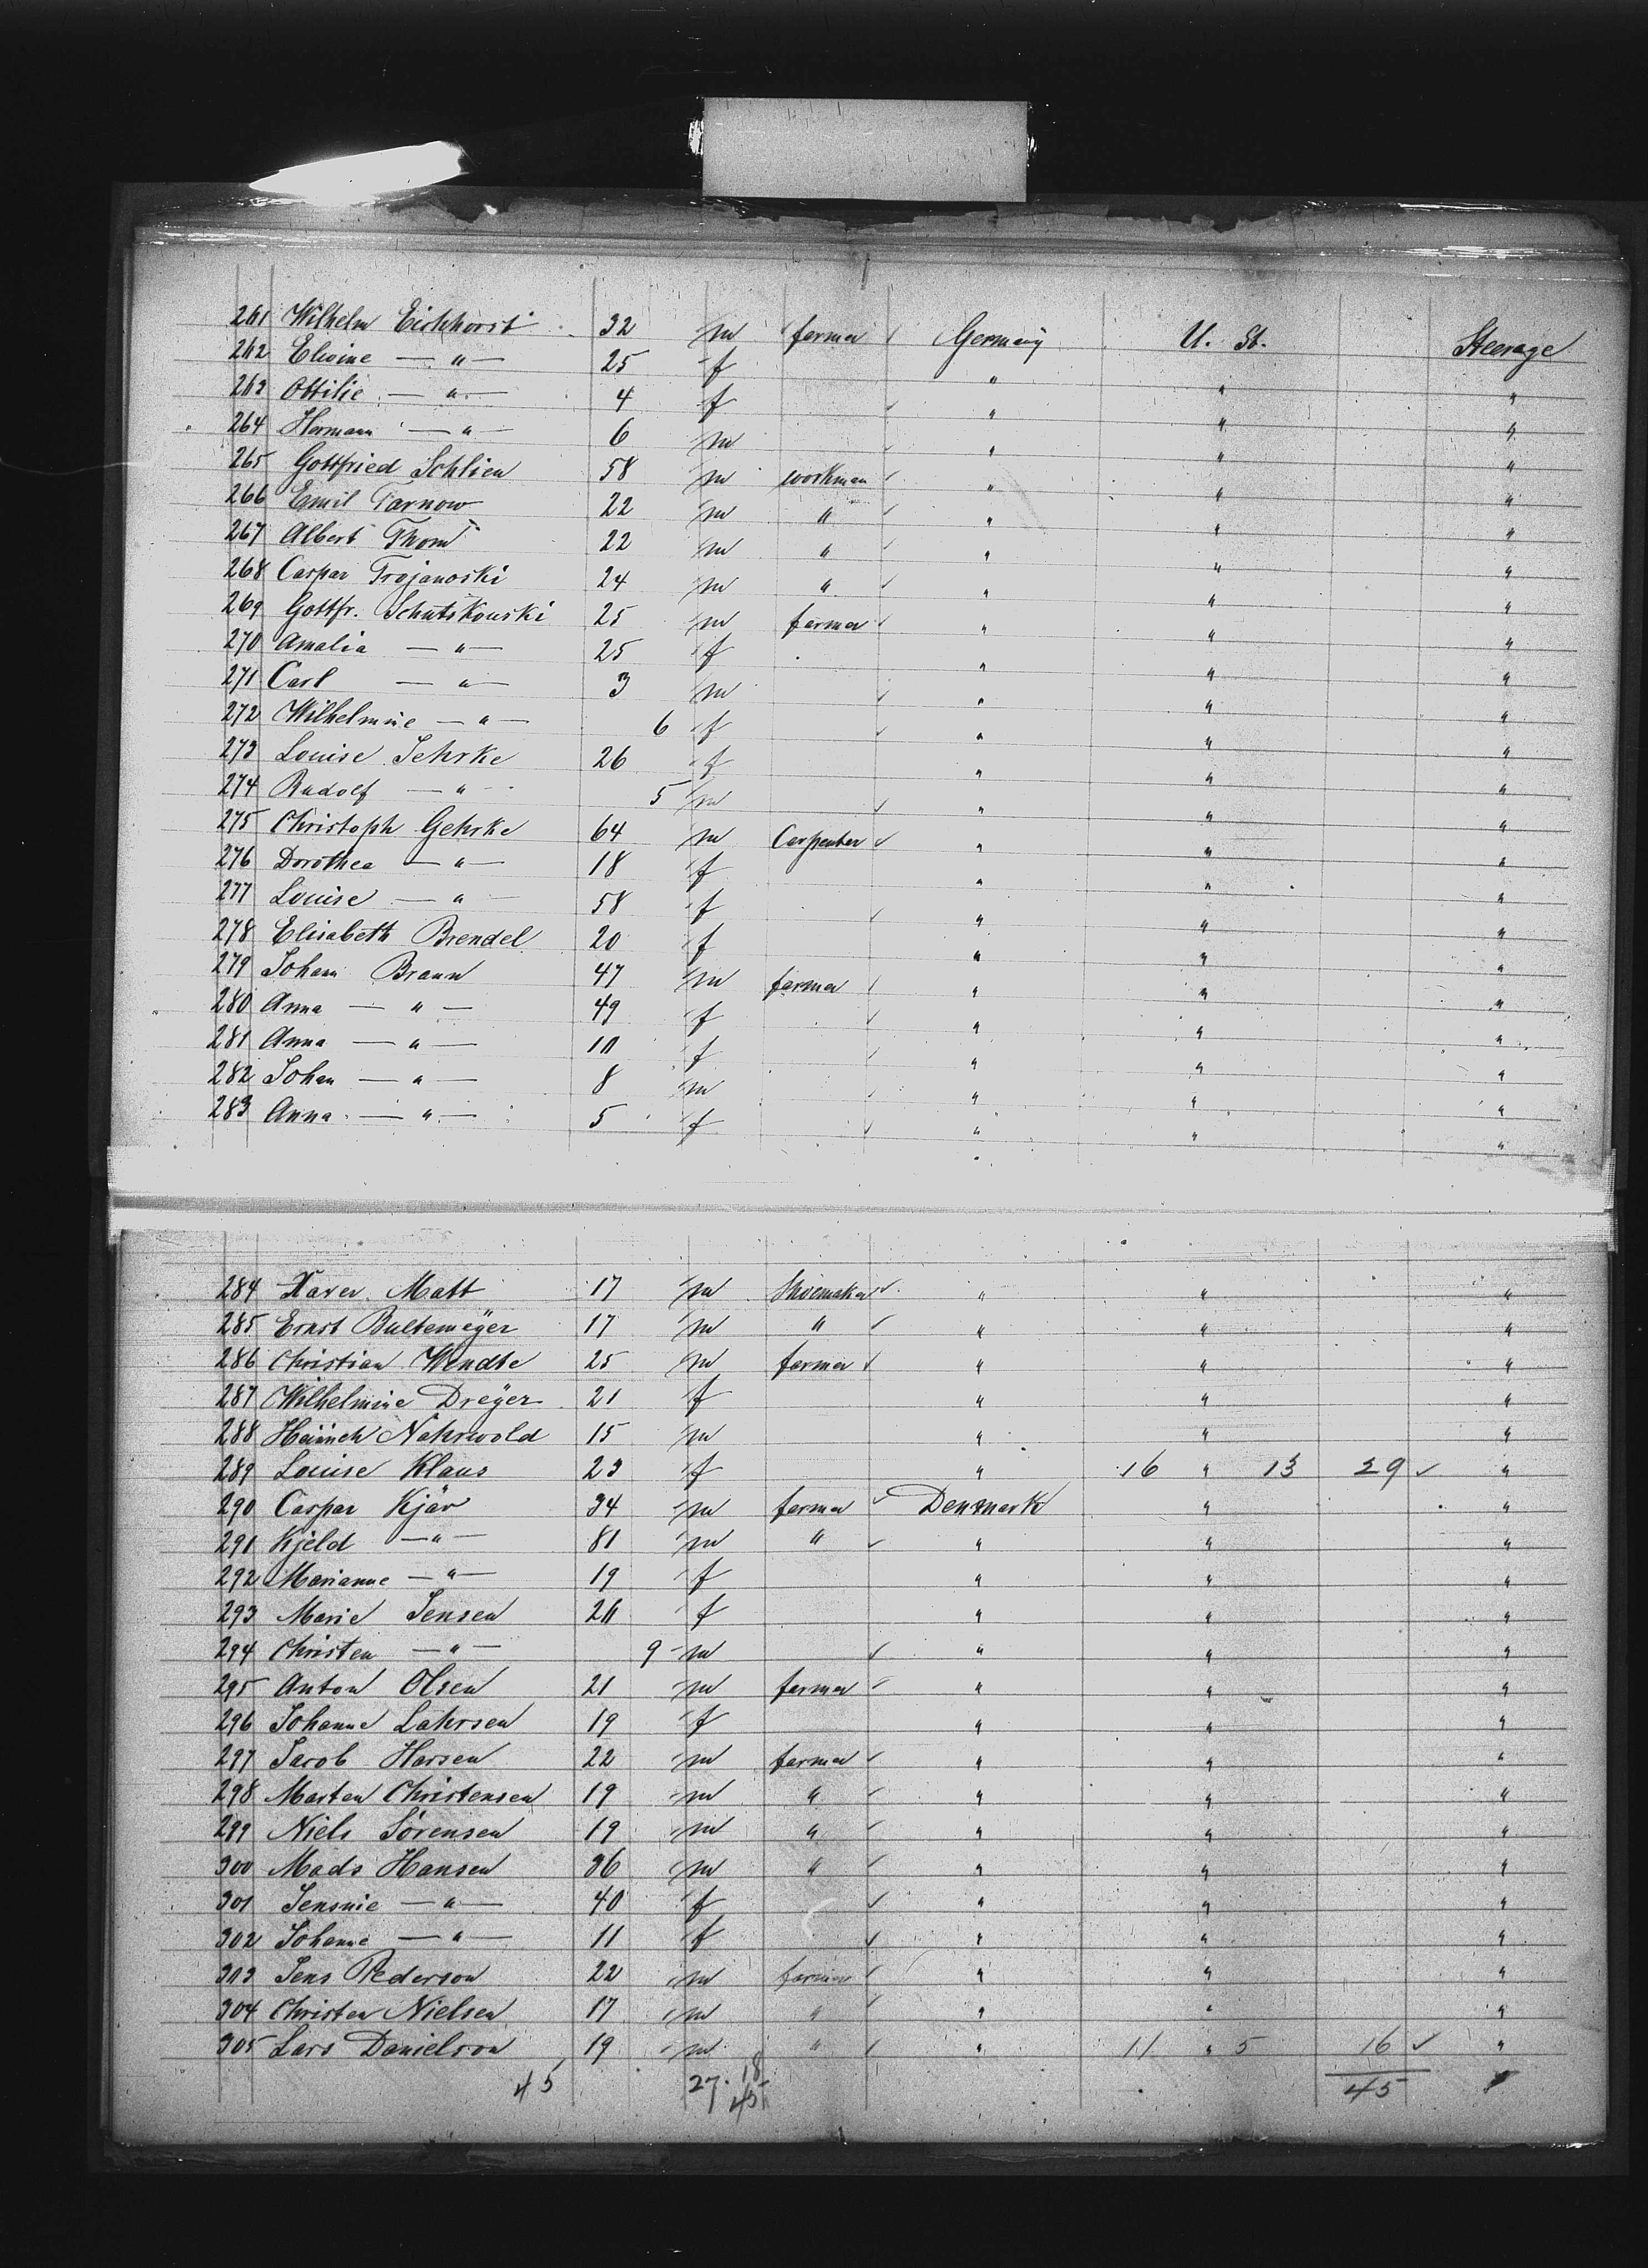 261 Wilhelm Eichhorst 32 m farmer Germany U. St. Steerage
262 Elwine — " — 25 f " " "
263 Ottilie — " — 4 f " " "
264 Hermann — " — 6 m " " "
265 Gottfried Schlien 58 m workman " " "
266 Emil Tarnow 22 m " " " "
267 Albert Thom 22 m " " " "
268 Caspar Trojanoski 24 m " " " "
269 Gottfr. Schutskowski 25 m farmer " " "
270 Amalia — " — 25 f " " "
271 Carl — " — 3 m " " "
272 Wilhelmine — " — 6 f " " "
273 Louise Jehrke 26 f " " "
274 Rudolf — " — 5 m " " "
275 Christoph Gehrke 64 m Carpenter " " "
276 Dorothea — " — 18 f " " "
277 Louise — " — 58 f " " "
278 Elisabeth Brendel 20 f " " "
279 Johann Braun 47 m farmer " " "
280 Anna — " — 49 f " " "
281 Anna — " — 10 f " " "
282 Johan — " — 8 m " " "
283 Anna — " — 5 f " " "
284 Xaver Matt 17 m Shoemaker " " "
285 Ernst Bultemeÿer 17 m " " " "
286 Christian Wendte 25 m farmer " " "
287 Wilhelmine Dreÿer 21 f " " "
288 Heinrich Nahrwold 15 m " " "
289 Louise Klaus 23 f " 16 " 13 29 "
290 Caspar Kjär 34 m farmer Denmark " "
291 Kjeld — " — 81 m " " " "
292 Marianne — " — 19 f " " "
293 Marie Jensen 20 f " " "
294 Christen — " — 9 m " " "
295 Anton Olsen 21 m farmer " " "
296 Johanne Lahrsen 19 f " " "
297 Jacob Harsen 22 m farmer " " "
298 Marten Christensen 19 m " " " "
299 Niels Sörensen 19 m " " " "
300 Mads Hansen 36 m " " " "
301 Jensnie — " — 40 f " " "
302 Johanne — " — 11 f " " "
303 Jens Pederson 22 m farmer " " "
304 Christen Nielsen 17 m " " " "
305 Lars Danielson 19 m " " 11 " 5 16 "
45 27. 18 45
45